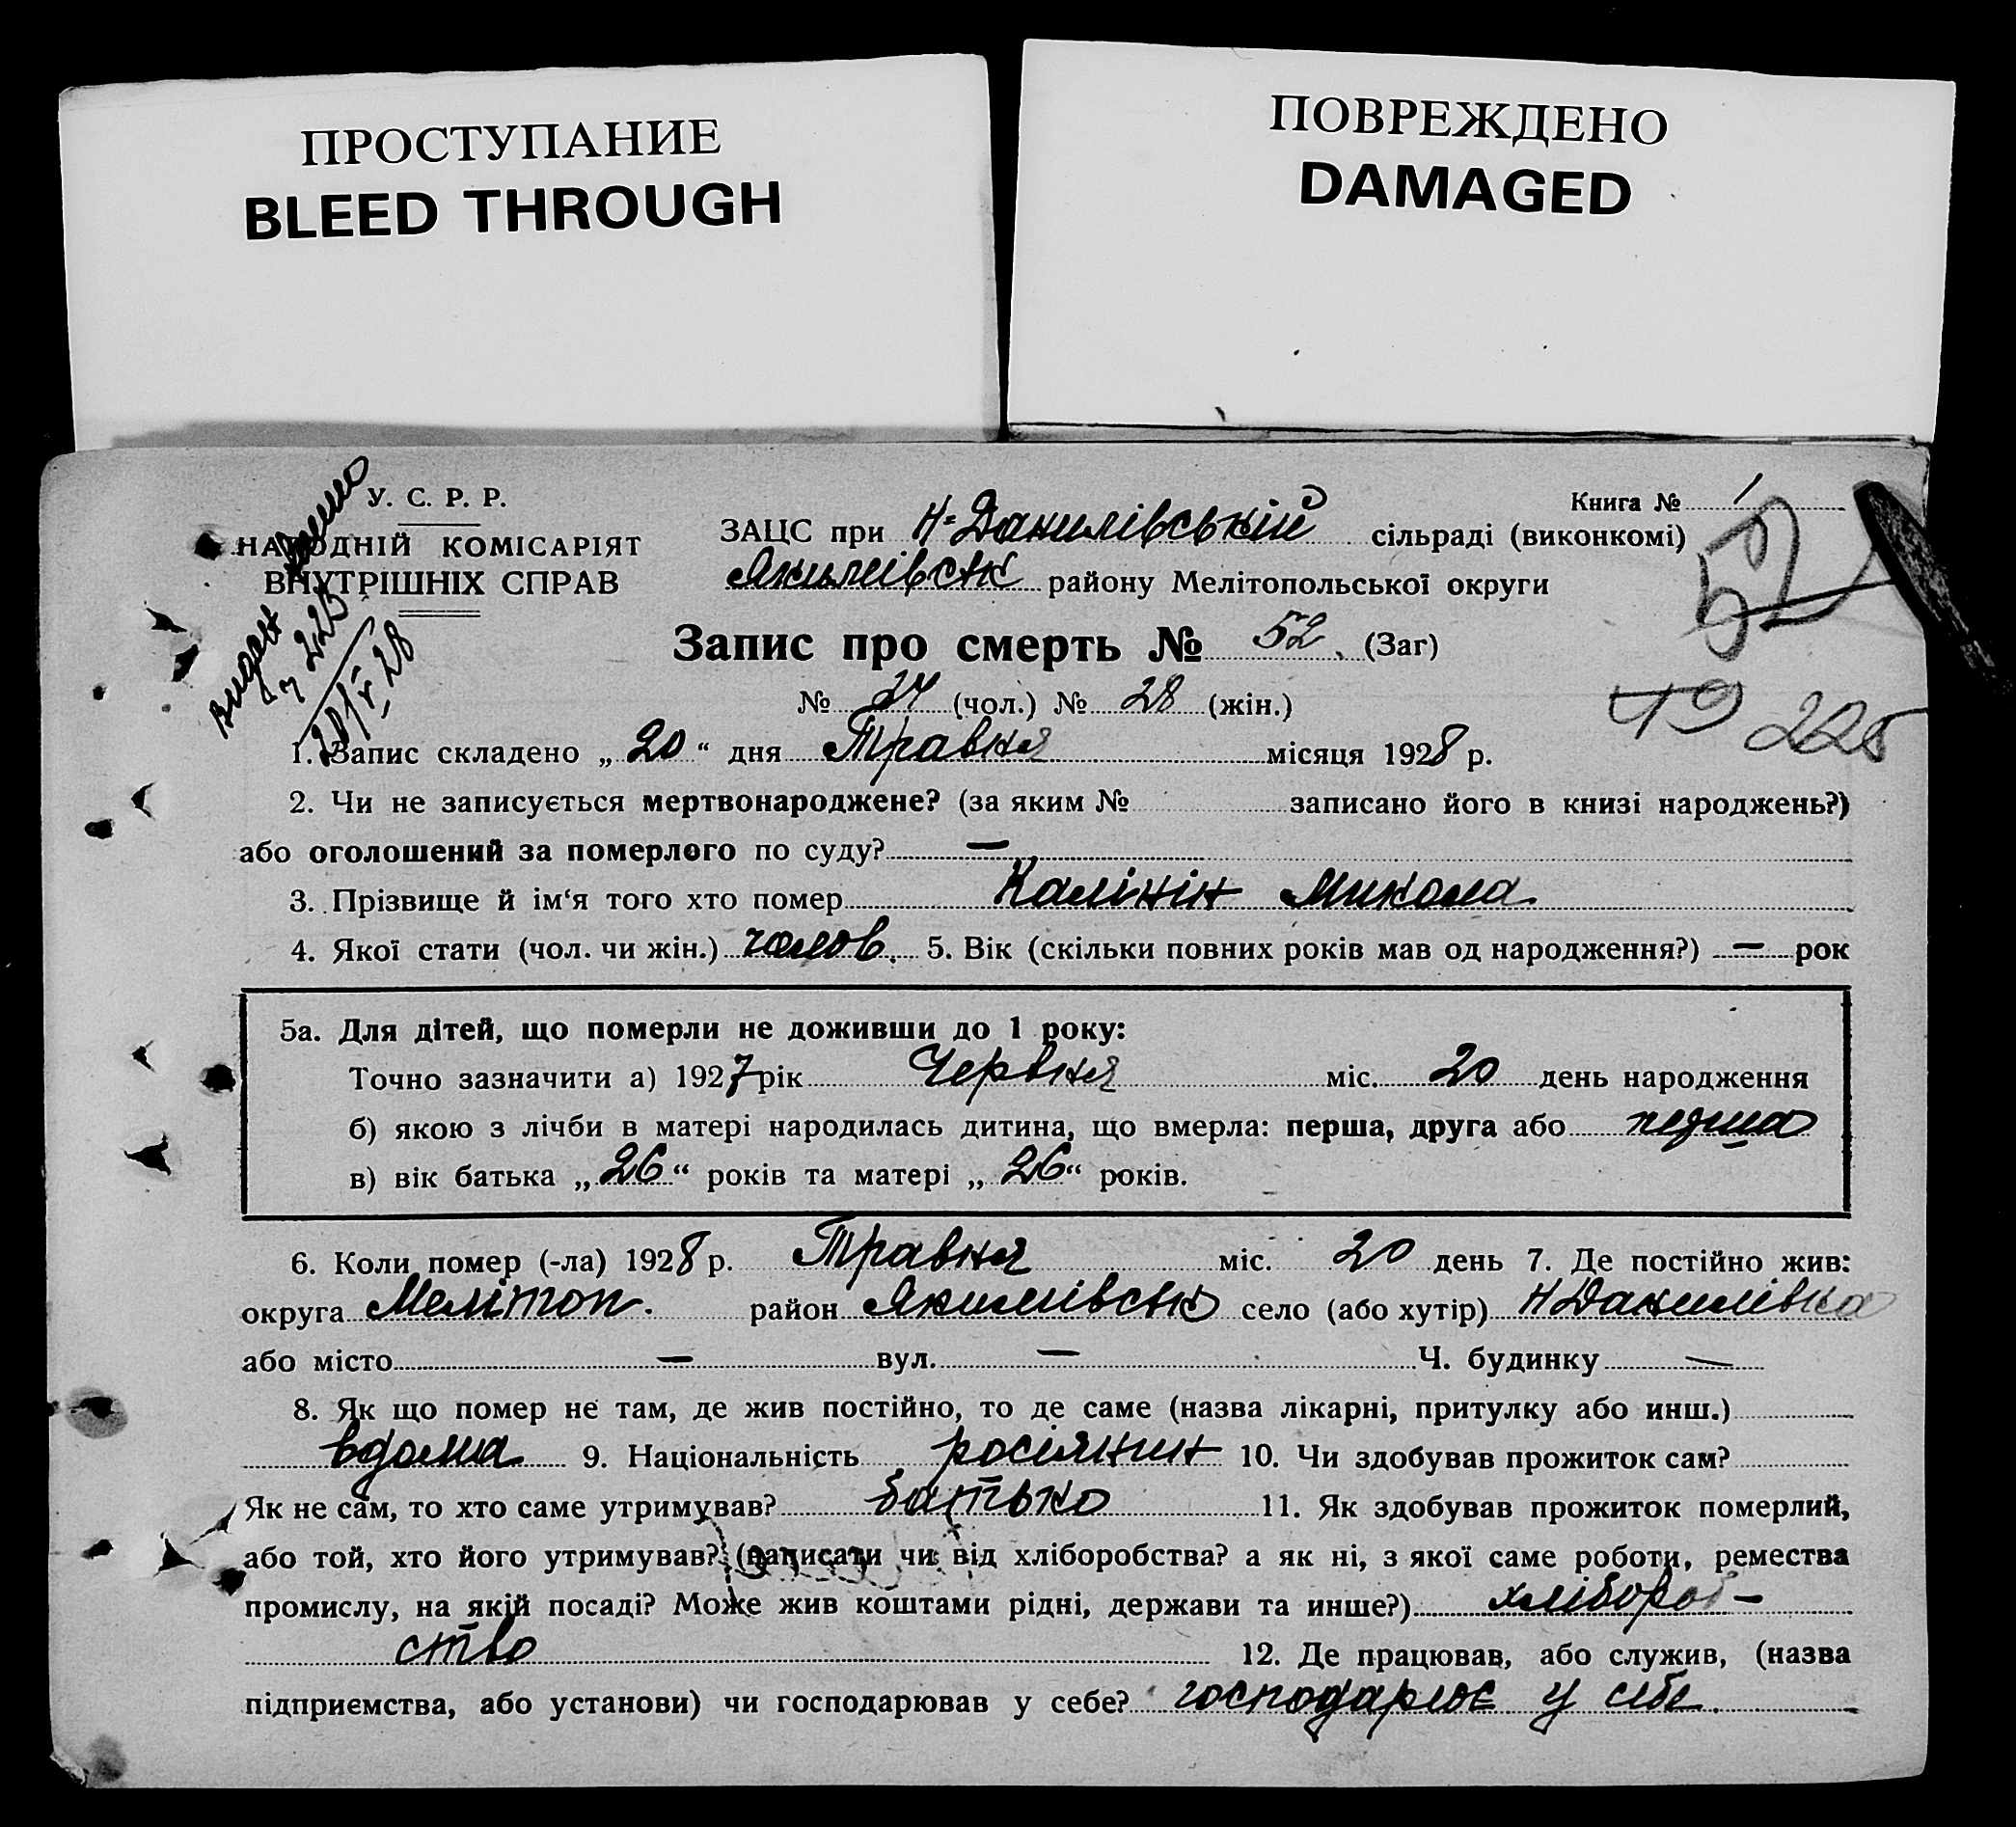 ПРОСТУПАНИЕ
BLEED THROUGH
ПОВРЕЖДЕНО
DAMAGED
У. С. Р. Р.
НАРОДНІЙ КОМІСАРІЯТ
ВНУТРІШНІХ СПРАВ
Книга № 1
ЗАЦС при Н-Данилівській сільраді (виконкомі)
Якимівськ району Мелітопольської округи
52
Запис про смерть № 52. (Заг)
№ 24 (чол.) № 28 (жін.)
49 225
1. Запис складено „20“ дня Травня місяця 1928 р.
2. Чи не записується мертвонароджене? (за яким № записано його в книзі народжень?)
або оголошений за померлого по суду? —
3. Прізвище й ім‘я того хто помер Калінін Микола
4. Якої стати (чол. чи жін.) чолов. 5. Вік (скільки повних років мав од народження?) — рок
5а. Для дітей, що померли не доживши до 1 року:
Точно зазначити а) 1927 рік Червня міс. 20 день народження
б) якою з лічби в матері народилась дитина, що вмерла: перша, друга або перша
в) вік батька „26“ років та матері „26“ років.
6. Коли помер (-ла) 1928 р. Травня міс. 20 день 7. Де постійно жив:
округа Мелітоп. район Якимівськ село (або хутір) Н Данилівка
або місто — вул. — Ч. будинку —
8. Як що помер не там, де жив постійно, то де саме (назва лікарні, притулку або инш.)
вдома 9. Національність росіянин 10. Чи здобував прожиток сам?
Як не сам, то хто саме утримував? батько 11. Як здобував прожиток померлий,
або той, хто його утримував? (написати чи від хліборобства? а як ні, з якої саме роботи, ремества
промислу, на якій посаді? Може жив коштами рідні, держави та инше?) хлібороб-
ство 12. Де працював, або служив, (назва
підприємства, або установи) чи господарював у себе? господарює у себе.